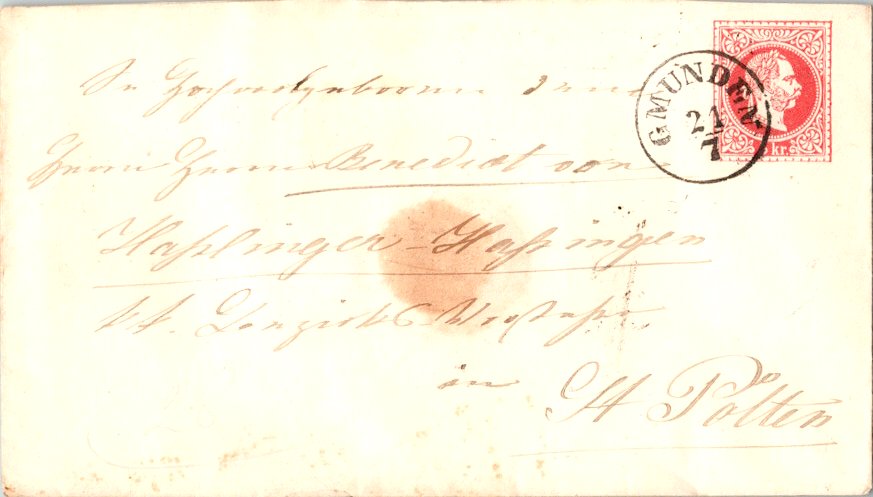 GMUNDEN
21
7
kr.
Sr Hochwohlgeboren dem
Herrn Herrn Benedict von
Haßlinger-Haßingen
k. k. Bezirks-Vorsteher
in
St Pölten